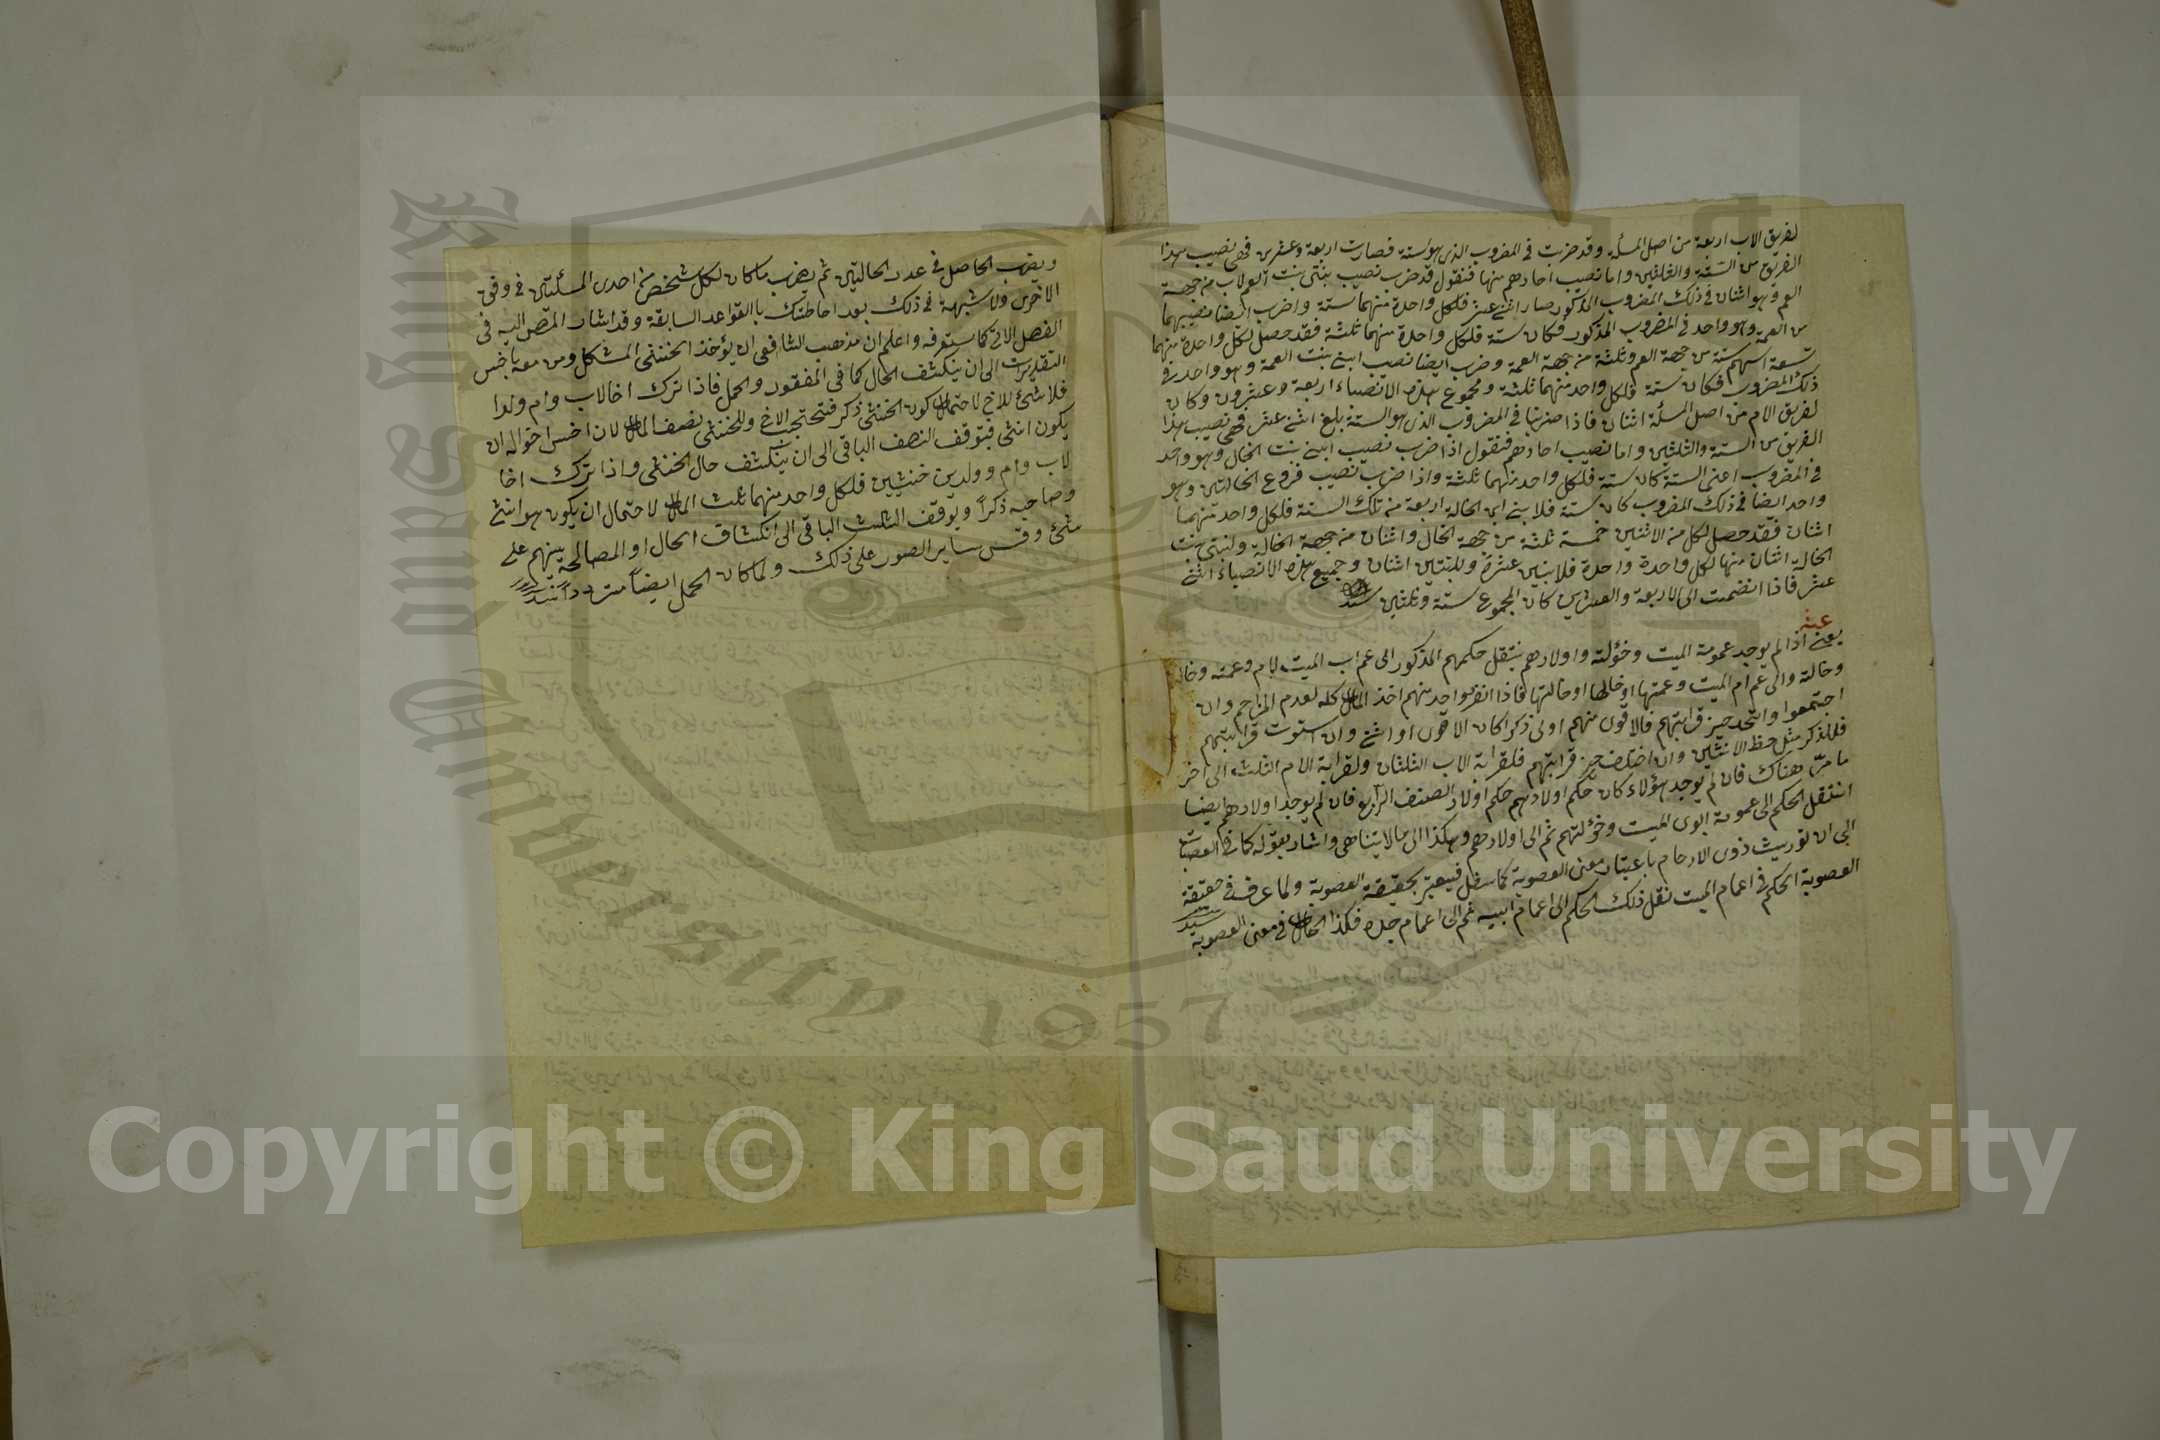 لفريق الاب اربعة من اصل المسألة وقد ضربت في المضروب الذي هو ستة فصارت اربعة وعشرين فهي نصيب هذا
الفريق من الستة والثلثين واما نصيب احادهم منها فنقول قد ضرب نصيب بنتي بنت العم لاب من جهة
العم وهو اثنان في ذلك المضروب المذكور صار اثنى عشر فلكل واحدة منهما ستة واضرب ايضا نصيبهما
من العمة وهو واحد في المضروب المذكور فكان ستة فلكل واحدة منهما ثلثة فقد حصل لكل واحدة منهما
تسعة اسهم ستة من جهة العم وثلثة من جهة العمة وضرب ايضا نصيب ابني بنت العمة وهو واحد في
ذلك المضروب فكان ستة فلكل واحد منهما ثلثة ومجموع هذه الانصباء اربعة وعشرون وكان
لفريق الام من اصل المسألة اثنان فاذا ضربنا في المضروب الذي هو الستة بلغ اثنى عشر فهي نصيب هذا
الفريق من الستة والثلثين واما نصيب احادهم فنقول اذا ضرب نصيب ابني بنت الخال وهو واحد
في المضروب اعني الستة كان ستة فلكل واحد منهما ثلثة واذا ضرب نصيب فروع الخالتين وهو
واحد ايضا في ذلك المضروب كان ستة فلابني ابن الخالة اربعة من تلك الستة فلكل واحد منهما
اثنان فقد حصل لكل من الاثنين خمسة ثلثة من جهة الخال واثنان من جهة الخالة ولبنتي بنت
الخالة اثنان منها لكل واحدة واحدة فلابنين عشرة وللبنتين اثنان وجميع هذه الانصباء اثنى
عشر فاذا انضمت الى الاربعة والعشرين كان المجموع ستة وثلثين سيد
عشر
يعني اذا لم يوجد عمومة الميت وخؤلته واولادهم ينتقل حكمهم المذكور الى عم اب الميت لام وعمته وخاله
وخالته والى عم ام الميت وعمتها وخالها وخالتها فاذا انفرد واحد منهم اخذ المال كله لعدم المزاحم وان
اجتمعوا واتحد حيز قرابتهم فالاقوى منهم اولى ذكرا كان الاقوى او انثى وان استوت قرابتهم
فللذكر مثل حظ الانثيين وان اختلف حيز قرابتهم فلقرابة الاب الثلثان ولقرابة الام الثلث الى اخر
ما مر هناك فان لم يوجد هؤلاء كان حكم اولادهم حكم اولاد الصنف الرابع فان لم يوجد اولادهم ايضا
انتقل الحكم الى عمومة ابوي الميت وخؤلتهم ثم الى اولادهم وهكذا الى ما لا يتناهى واشار بقوله كما في العصبات
الى ان توريث ذوى الارحام باعتبار معنى العصوبة كما سفل فيعتبر بحقيقة العصوبة ولما عرف في حقيقة
العصوبة الحكم في اعمام الميت نقل ذلك الحكم الى اعمام ابيه ثم الى اعمام جده فكذا الحال في معنى العصوبة
سيد
ويضرب الحاصل في عدد الحاليتين ثم يضرب ما كان لكل شخص من احدى المسئلتين في وفق
الاخرى ولا شبهة في ذلك بعد احاطتك بالقواعد السابقة وقد اشار المص اليه في
الفصل الاتي كما ستعرفه واعلم ان مذهب الشافعي ان يؤخذ الخنثى المشكل ومن معه باخس
التقديرات الى ان ينكشف الحال كما في المفقود والحمل فاذا ترك اخا لاب وام وولدا
فلا شئ للاخ لاحتمال كون الخنثى ذكر فتحتجب الاخ وللخنثى نصف المال لان اخس احواله ان
يكون انثى فيتوقف النصف الباقى الى ان ينكشف حال الخنثى واذا ترك اخا
لاب وام وولدين خنثيين فلكل واحد منهما ثلث المال لاحتمال ان يكون هو انثى
وصاحبه ذكرا ويوقف الثلث الباقى الى انكشاف الحال او المصالحة بينهم على
شئ وقس ساير الصور على ذلك ولما كان الحمل ايضا مترددا سيد
King Saud University
1957
Copyright © King Saud University